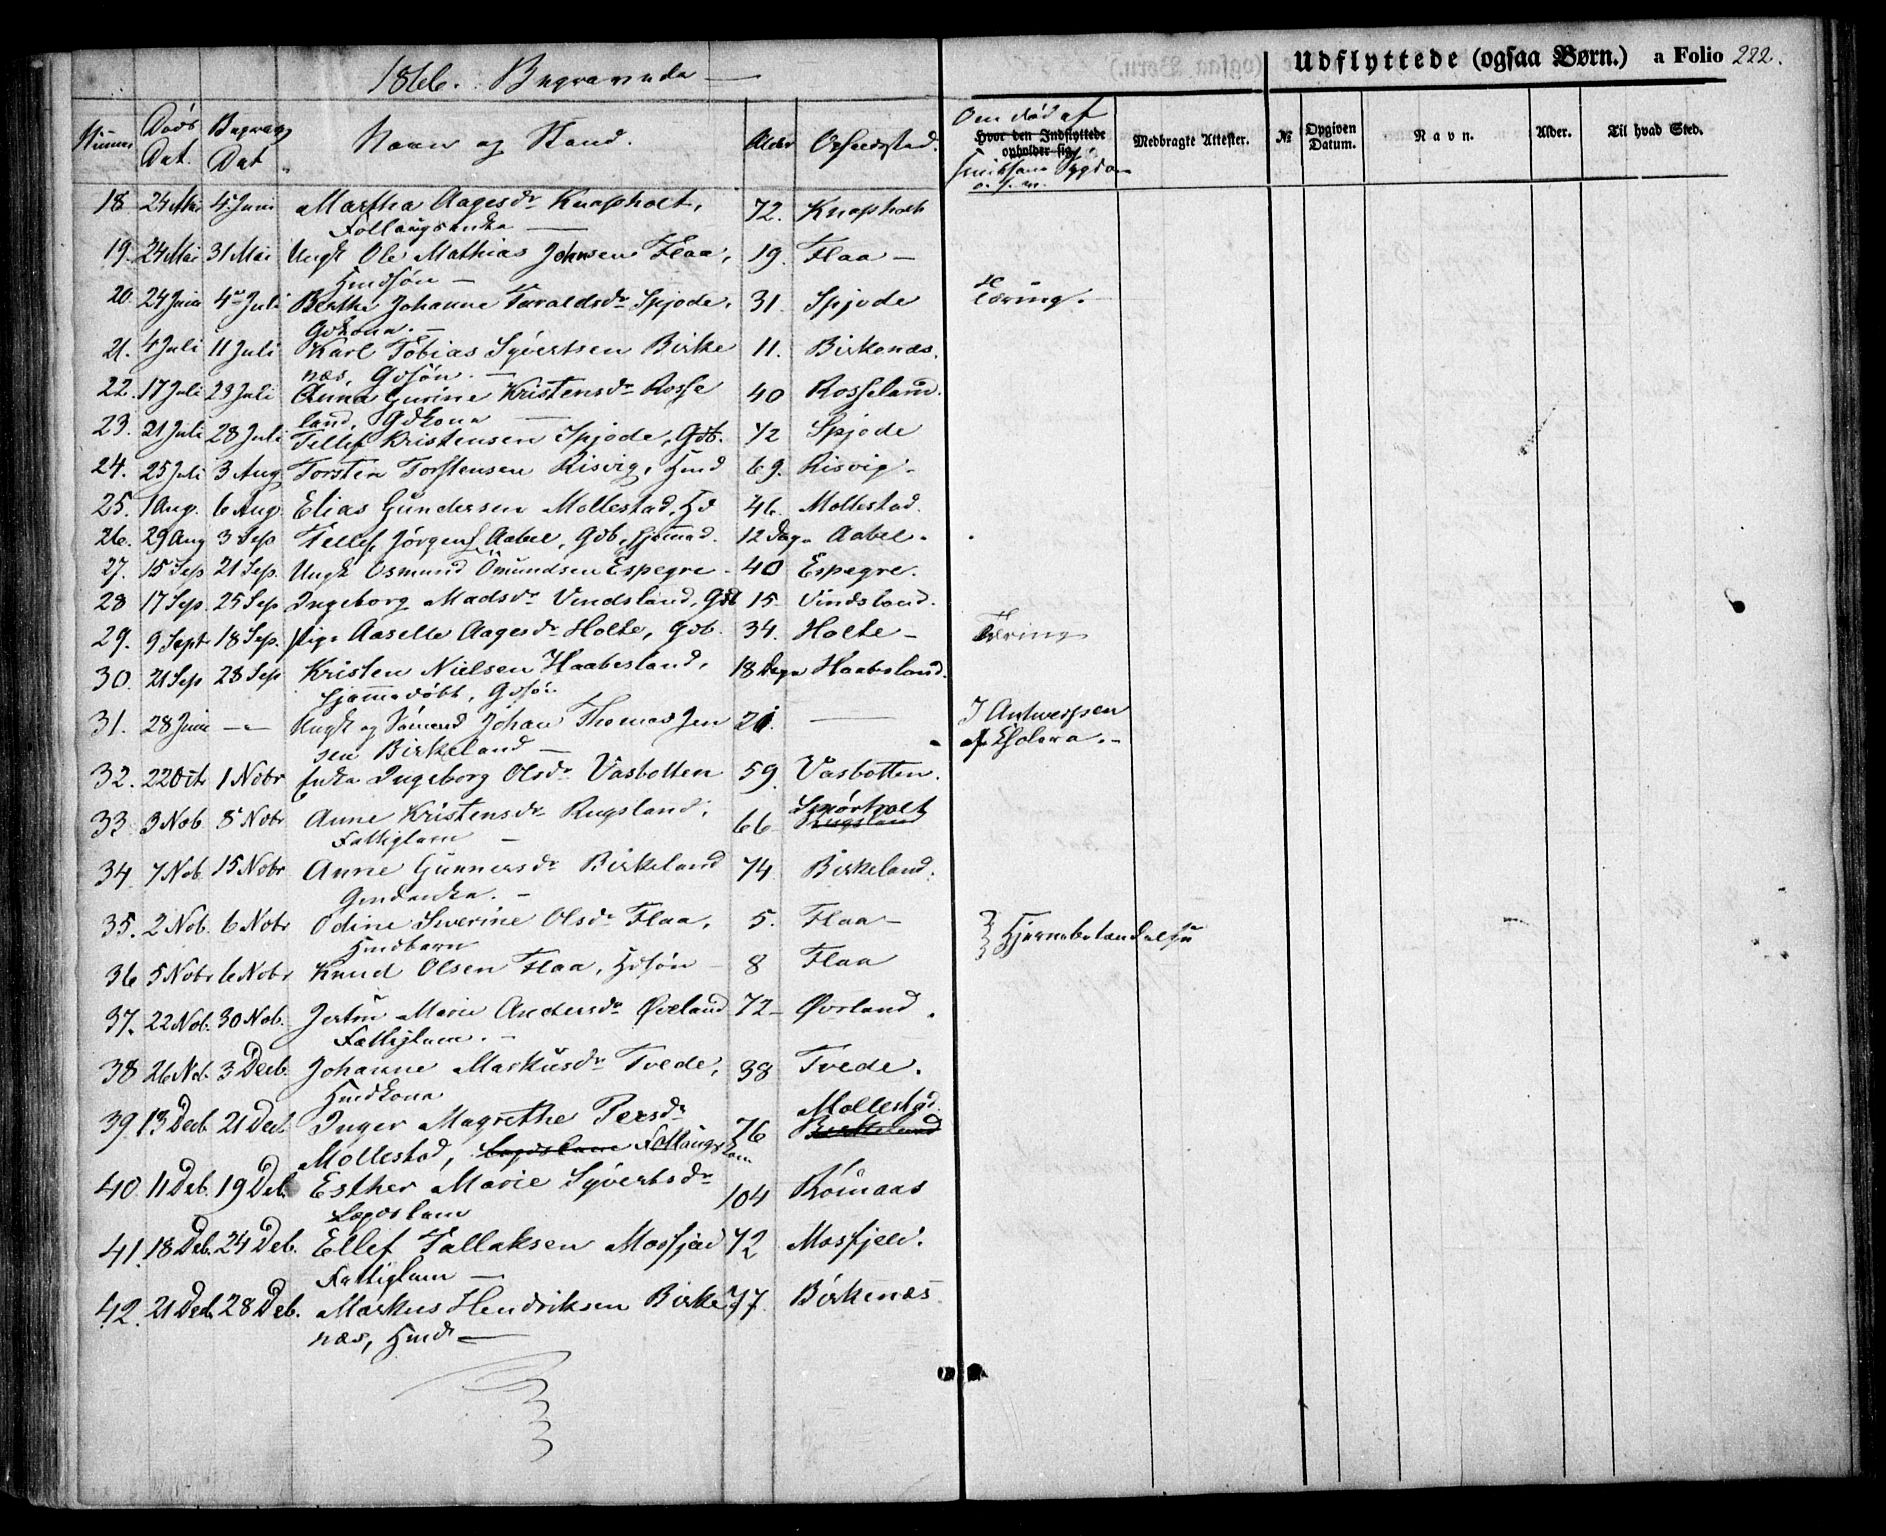 1866. Begravede
Udflyttede (ogsaa Børn.) a Folio 222.
Numer Døds Dat. Begrav. Dat. Navn og Stand. Alder Opholdsted. Om død af
Hvor den Indflyttede opholder sig Medbragte Attester. № Opgiven Datum. Navn. Alder. Til hvad Sted.
Sygdom
o. s. v.
18. 24 Mai 4 Juni Martha Aagesdr Knapholt, 72. Knapholt
Føllaugsenke
19. 24 Mai 31 Mai Ungk Ole Mathias Johnsen Flaa, 19. Flaa
Hmdsøn
20. 24 Juni 4 Juli Berthe Johanne Taraldsdr Spjode, 31. Spjode Tæring.
Gdkona.
21. 4 Juli 11 Juli Karl Tobias Syvertsen Birke 11. Birkenæs.
næs, Gdsøn.
22. 17 Juli 23 Juli Anna Gurine Kristensdr Rosse 40 Rosseland.
land, Gdkona
23. 21 Juli 28 Juli Tellef Kristensen Spjode, Gdb. 72 Spjode
24. 25 Juli 3 Aug Torsten Torstensen Risvig, Hmd 69. Risvig
25. 1 Aug. 6 Aug. Elias Gundersen Mollestad, Hd 46. Mollestad.
26. 29 Aug 3 Sep Tellef Jørgens Aabel, Gdb, hjemmed. 12 Dage Aabel.
27. 15 Sep 21 Sep. Ungk Osmund Omundsen Espegre 40 Espegre.
28 17 Sep. 25 Sep Ingeborg Madsdr Vindsland, Gdb 15. Vindsland.
29. 9 Sept 18 Sep. Pige Aaselle Aagesdr Holte, Gdb. 34. Holte Tæring
30. 21 Sep 23 Sep Kristen Nielsen Haabesland, 18 Dage Haabesland.
hjemmedøbt, Gdsøn
31. 28 Juni Ungk og Sømand Johan Thomas Jen 21. I Antwerpen
sen Birkeland af Cholera.
32. 22 Octr 1 Nobr Enke Ingeborg Olsdr Vasbotten 59. Vasbotten.
33 3 Nob. 8 Nobr Anne Kristensdr Rugsland, 66 Smørholt Rugsland
Fattiglem
34. 7 Nob. 15 Nobr Anne Gunnersdr Birkeland 74 Birkeland.
Gmdenke.
35. 2 Nob. 6 Nobr Odine Severine Olsdr Flaa, 5. Flaa Hjernebetændelse
Hmdbarn
36 5 Nobr 6 Nobr Knud Olsen Flaa, Hdsøn 8 Flaa
37. 22 Nob. 30 Nob. Marie Andersdr Øveland 72 Øvland.
Fattiglem.
38 26 Nob. 3 Decb. Johanne Markusdr Tvede, 38 Tvede.
Hmdkona
39. 13 Decb 21 Decb. Inger Magrethe Persdr 76 Mollestad. Birkeland
Mollestad, Lægdslem Føllaugskone
40. 11 Deb. 19 Deb. Esther Marie Syvertsdr 104 Römaas
Lægdslem
41. 18 Deb. 24 Deb. Ellef Tallaksen Mosfjed 72 Mosfjeld.
Fattiglem
42. 21 Deb. 28 Deb. Markus Hendriksen Birke 77. Birkenæs
næs, Hmd